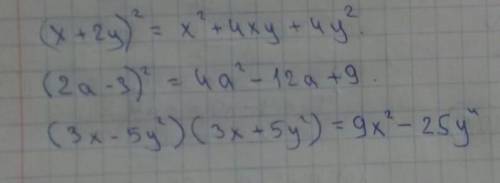 (x+2y)² = x²+4xy+4y².
(2a-3)² = 4a²-12a+9.
(3x-5y²)(3x+5y²)=9x²-25y⁴